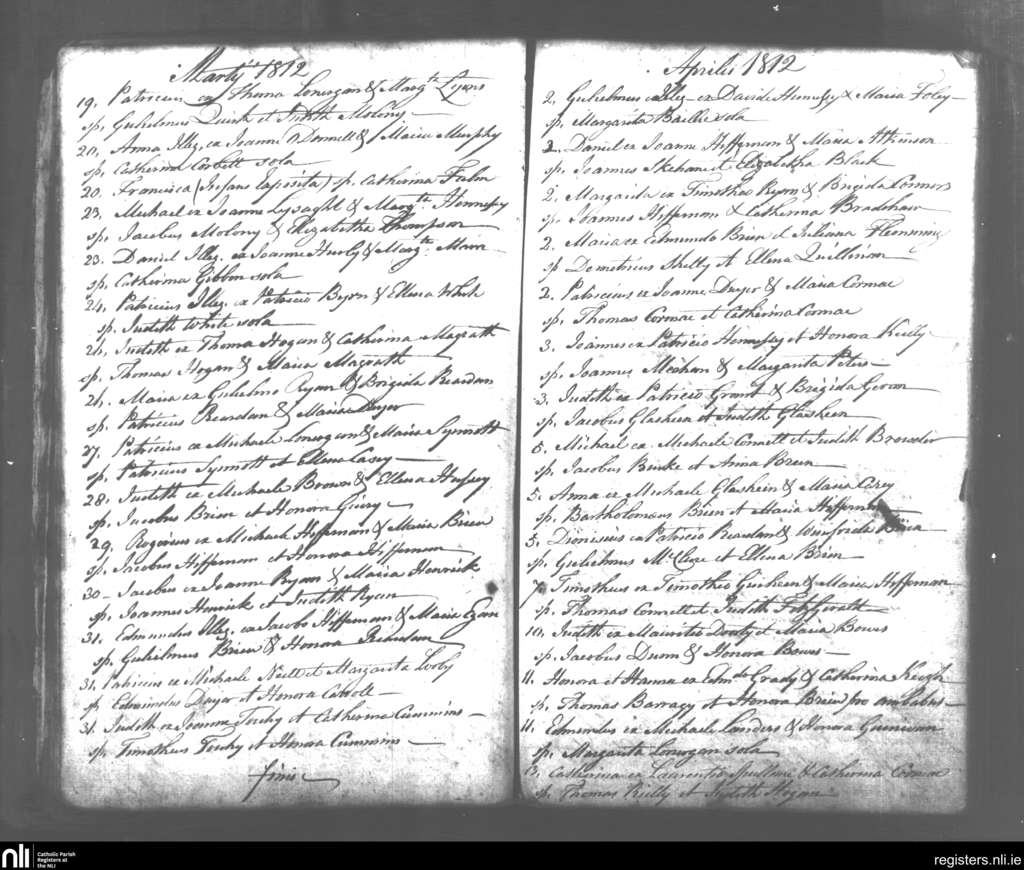 Martij 1812
19. Patricius ex Thoma Lonergan & Margta Lyons
sp. Gulielmus Quirk et Judith Molony
20. Anna Illeg. ex Joanne O Donnell & Maria Murphy
sp. Catherina Corbett sola
20. Francisca (Infans Exposita) sp. Catherina
23. Michael ex Joanne Lysaght & Margta Hennessy
sp. Jacobus Molony & Elizabetha Thompson
23. Daniel Illeg. ex Joanne Hurly & Margta
sp. Catherina Gibbon sola
24. Patricius Illeg. ex Patricio Byrn & Ellena White
sp. Judith White sola
24. Judith ex Thoma Hogan & Catherina Magrath
sp. Thomas Hogan & Maria Magrath
24. Maria ex Gulielmo Ryan & Brigida Reardan
sp. Patricius Reardan & Maria Dwyer
27. Patricius ex Michaele Lonergan & Maria Synnott
sp. Patricius Synnott et Ellena Casey
28. Judith ex Michaele Brown & Ellena Hussey
sp. Jacobus Brien et Honora
29. Rogerius ex Michaele Heffernan & Maria Brien
sp. Jacobus Heffernan et Honora Heffernan
30 Jacobus ex Joanne Ryan & Maria Henrick
sp. Joannes Henrick et Judith Ryan
31. Edmundus Illeg. ex Jacobo Heffernan & Maria Egan
sp. Gulielmus Brien & Honora Reardan
31. Patricius ex Michaele Neill et Margarita Looby
sp. Edmundus Dwyer et Honora Cabbott
31. Judith ex Joanne Touhy et Catherina Cummins
sp. Timotheus Touhy et Honora Cummins
finis
Aprilis 1812
2. Gulielmus Illeg. ex Davide Hennessy & Maria Foley
sp. Margarita Baillie sola
2. Daniel ex Joanne Heffernan & Maria Atkinson
sp. Joannes Skehan et Elizabetha Black
2. Margarita ex Timotheo Ryan & Brigida Connors
sp. Joannes Heffernan & Catherina Bradshaw
2. Maria ex Edmundo Brien et Juliana Flemming
sp Demetrius Skelly et Ellena Quillinan
2. Patricius ex Joanne Dwyer & Maria Cormac
sp. Thomas Cormac et Catherina Cormac
3. Joannes ex Patricio Hennessy et Honora Reilly
sp. Joannes Meehan & Margarita Peters
3. Judith ex Patricio Grant & Brigida
sp. Jacobus Glasheen et Judith Glasheen
5. Michael ex Michaele Connell et Judith Browder
sp. Jacobus Burke et Anna Brien
5. Anna ex Michaele Glasheen & Maria Carey
sp. Bartholomeus Brien et Maria Heffernan
5. Dionisius ex Patricio Reardan & Winifrida Brien
sp. Gulielmus et Ellena Brien
7. Timotheus ex Timotheo Guiheen & Maria Heffernan
sp. Thomas Connell et Judith FitzGerald
10. Judith ex Mauritio Dooly et Maria Bowes
sp. Jacobus Dunn & Honora Bowes
11. Honora et Hanna ex Edmdo Grady & Catherina Keogh
sp. Thomas Barragy et Honora Brien pro ambabus
11. Edmundus ex Michaele Landers & Honora
sp. Margarita Lonergan sola
13. Catherina ex Laurentio & Catherina Cormac
sp. Thomas Reilly et Judith Hogan
nli
Catholic Parish
Registers at
the NLI
registers.nli.ie